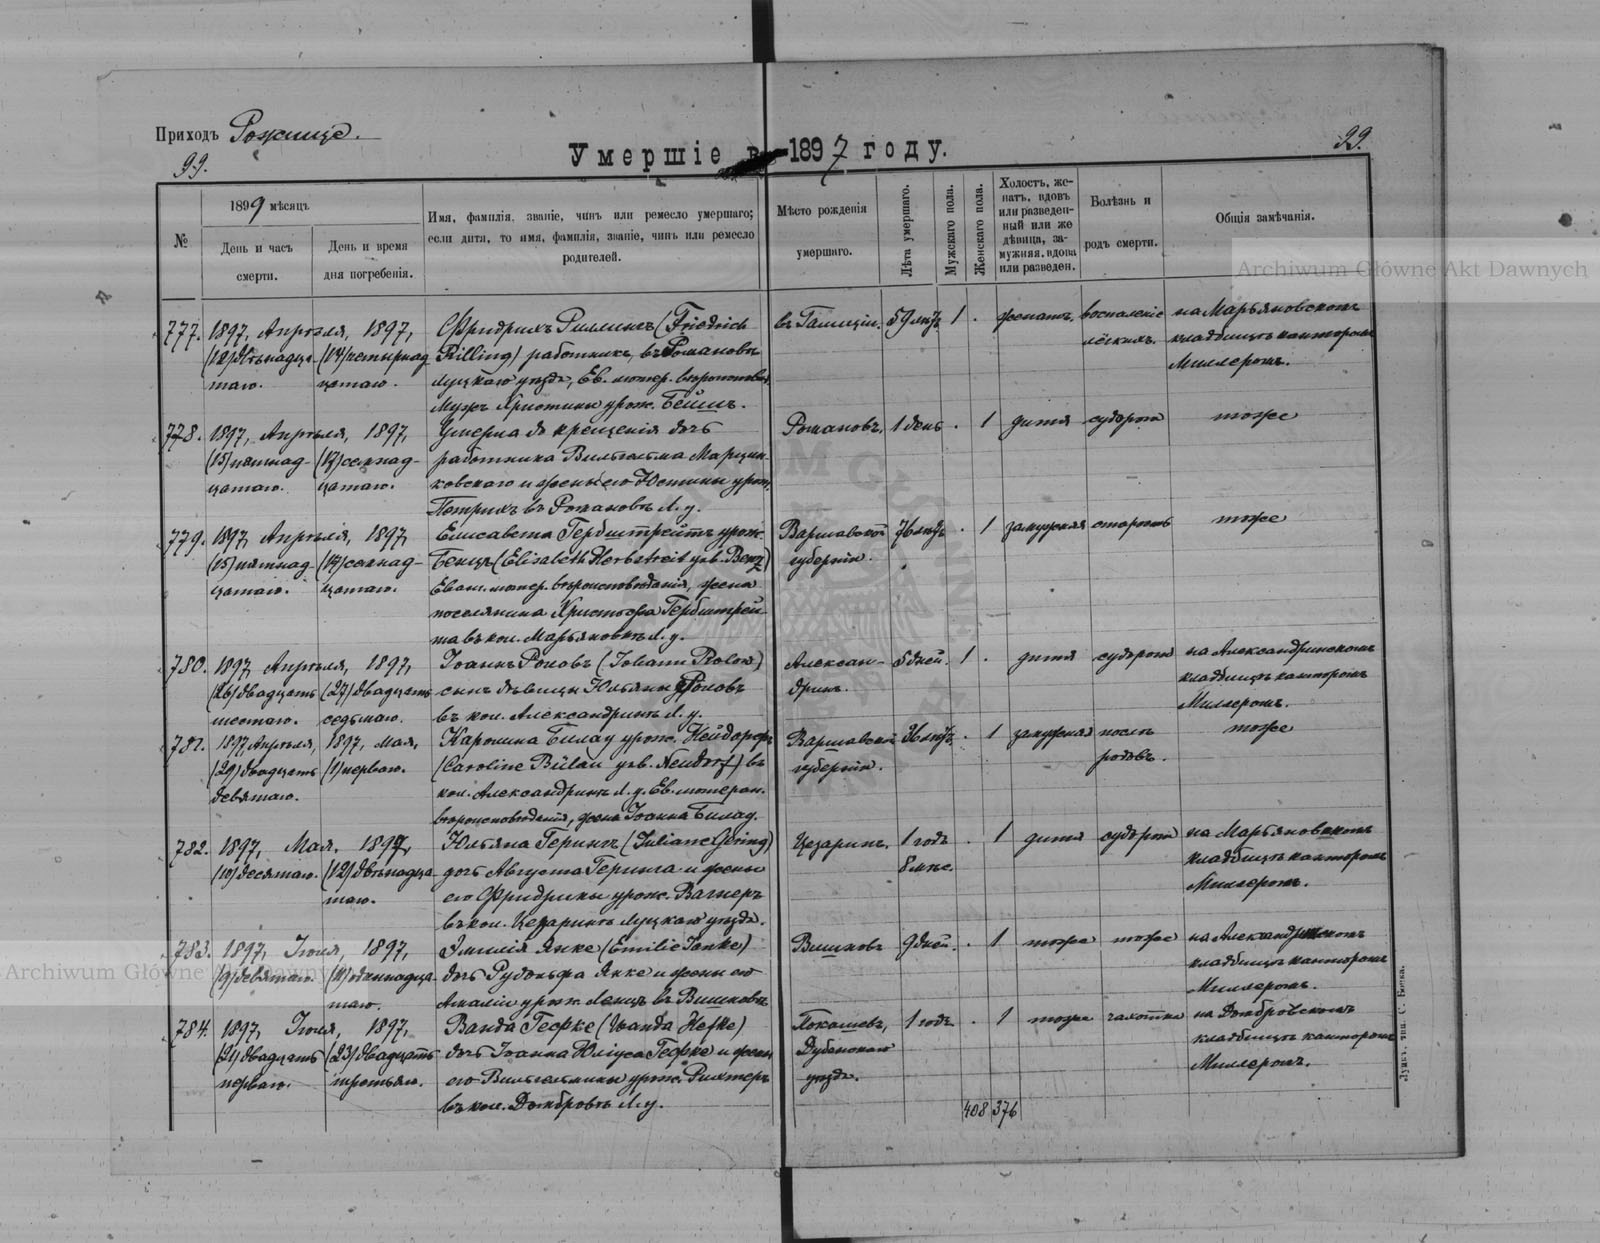 Приходъ Рожище.
99.
Умершіе въ 1897 году.
99.
№
1899 мѣсяцъ
День и часъ смерти.
День и время дня погребенія.
Имя, фамилія, званіе, чинъ или ремесло умершаго; если дитя, то имя, фамилія, званіе, чинъ или ремесло родителей.
Мѣсто рожденія умершаго.
Лѣта умершаго.
Мужскаго пола.
Женскаго пола.
Холостъ, же-
натъ, вдовъ
или разведен-
ный или же
дѣвица, за-
мужняя, вдова
или разведен.
Болѣзнь и родъ смерти.
Общія замѣчанія.
777. 1897, Апрѣля, 1897, Фридрихъ Риллингъ (Friedrich въ Галиціи. 59 лѣтъ 1 . женатъ. воспаленіе на Марьяновскомъ
(12) двѣнадца- (14) четырнад- Rilling) работникъ, въ Романовѣ лёгкихъ. кладбищѣ канторомъ
таго. цатаго. Луцкаго уѣзда, Ев. лютер. вѣроисповѣд. Миллеромъ.
Мужъ Христины урож. Бейшъ.
778. 1897, Апрѣля, 1897, Умерла до крещенія дочь Романовъ. 1 день . 1 дитя судорож тоже
(15) пятнад- (17) семнад- работника Вильгельма Марцин-
цатаго. цатаго. ковскаго и жены его Юстины урож.
Петрихъ въ Романовѣ Л. у.
779. 1897, Апрѣля, 1897, Елисавета Гербштрейтъ урож. Варшавской 76 лѣтъ . 1 замужняя старость тоже
(15) пятнад- (17) семнад- Бенцъ (Elisabeth Herbstreit geb. Benz) губерніи.
цатаго. цатаго. Еван. лютер. вѣроисповѣданія, жена
поселянина Христофа Гербштрей-
та въ кол. Марьяновкѣ Л. у.
780. 1897, Апрѣля, 1897, Іоаннъ Роловъ (Johann Rolow) Алексан- 5 дней. 1 . дитя судорож на Александринскомъ
(26) двадцать (27) двадцать сынъ дѣвицы Юльяны Роловъ дринъ. кладбищѣ канторомъ
шестаго. седьмаго. въ кол. Александринѣ Л. у. Миллеромъ.
781. 1897, Апрѣля, 1897, Мая, Каролина Билау урож. Нейдорфъ Варшавской 36 лѣтъ . 1 замужняя послѣ тоже
(29) двадцать (1) перваго. (Caroline Bülau geb. Neudorf) въ губерніи. родовъ.
девятаго. кол. Александринѣ Л. у. Ев. лютеран.
вѣроисповѣданія, жена Іоанна Билау.
782. 1897, Мая, 1897, Юльяна Герингъ (Juliane Göring) Цезаринъ. 1 годъ . 1 дитя судорож на Марьяновскомъ
(10) десятаго. (12) двѣнадца- дочь Августа Геринга и жены 8 мѣс. кладбищѣ канторомъ
таго. его Фридрики урож. Вагнеръ Миллеромъ.
въ кол. Цезаринѣ Луцкаго уѣзда.
783. 1897, Іюля, 1897, Эмилія Янке (Emilie Janke) Вишновъ 9 дней. . 1 тоже тоже на Александринскомъ
(9) девятаго. (11) одиннадца- дочь Рудольфа Янке и жены его кладбищѣ канторомъ
таго. Амаліи урож. Ленцъ въ Вишновѣ Миллеромъ.
784. 1897, Іюля, 1897, Ванда Гефке (Wanda Hefke) Покашевъ, 1 годъ . 1 тоже чахотка на Домбровскомъ
(21) двадцать (23) двадцать дочь Іоанна Юліуса Гефке и жены Дубенскаго кладбищѣ канторомъ
перваго. третьяго. его Вильгельмины урож. Рихтеръ уѣзда. Миллеромъ.
въ кол. Домбровѣ Л. у.
408 376
Луцк. тип. С. Бонка.
Archiwum Główne Akt Dawnych
Archiwum Główne Akt Dawnych